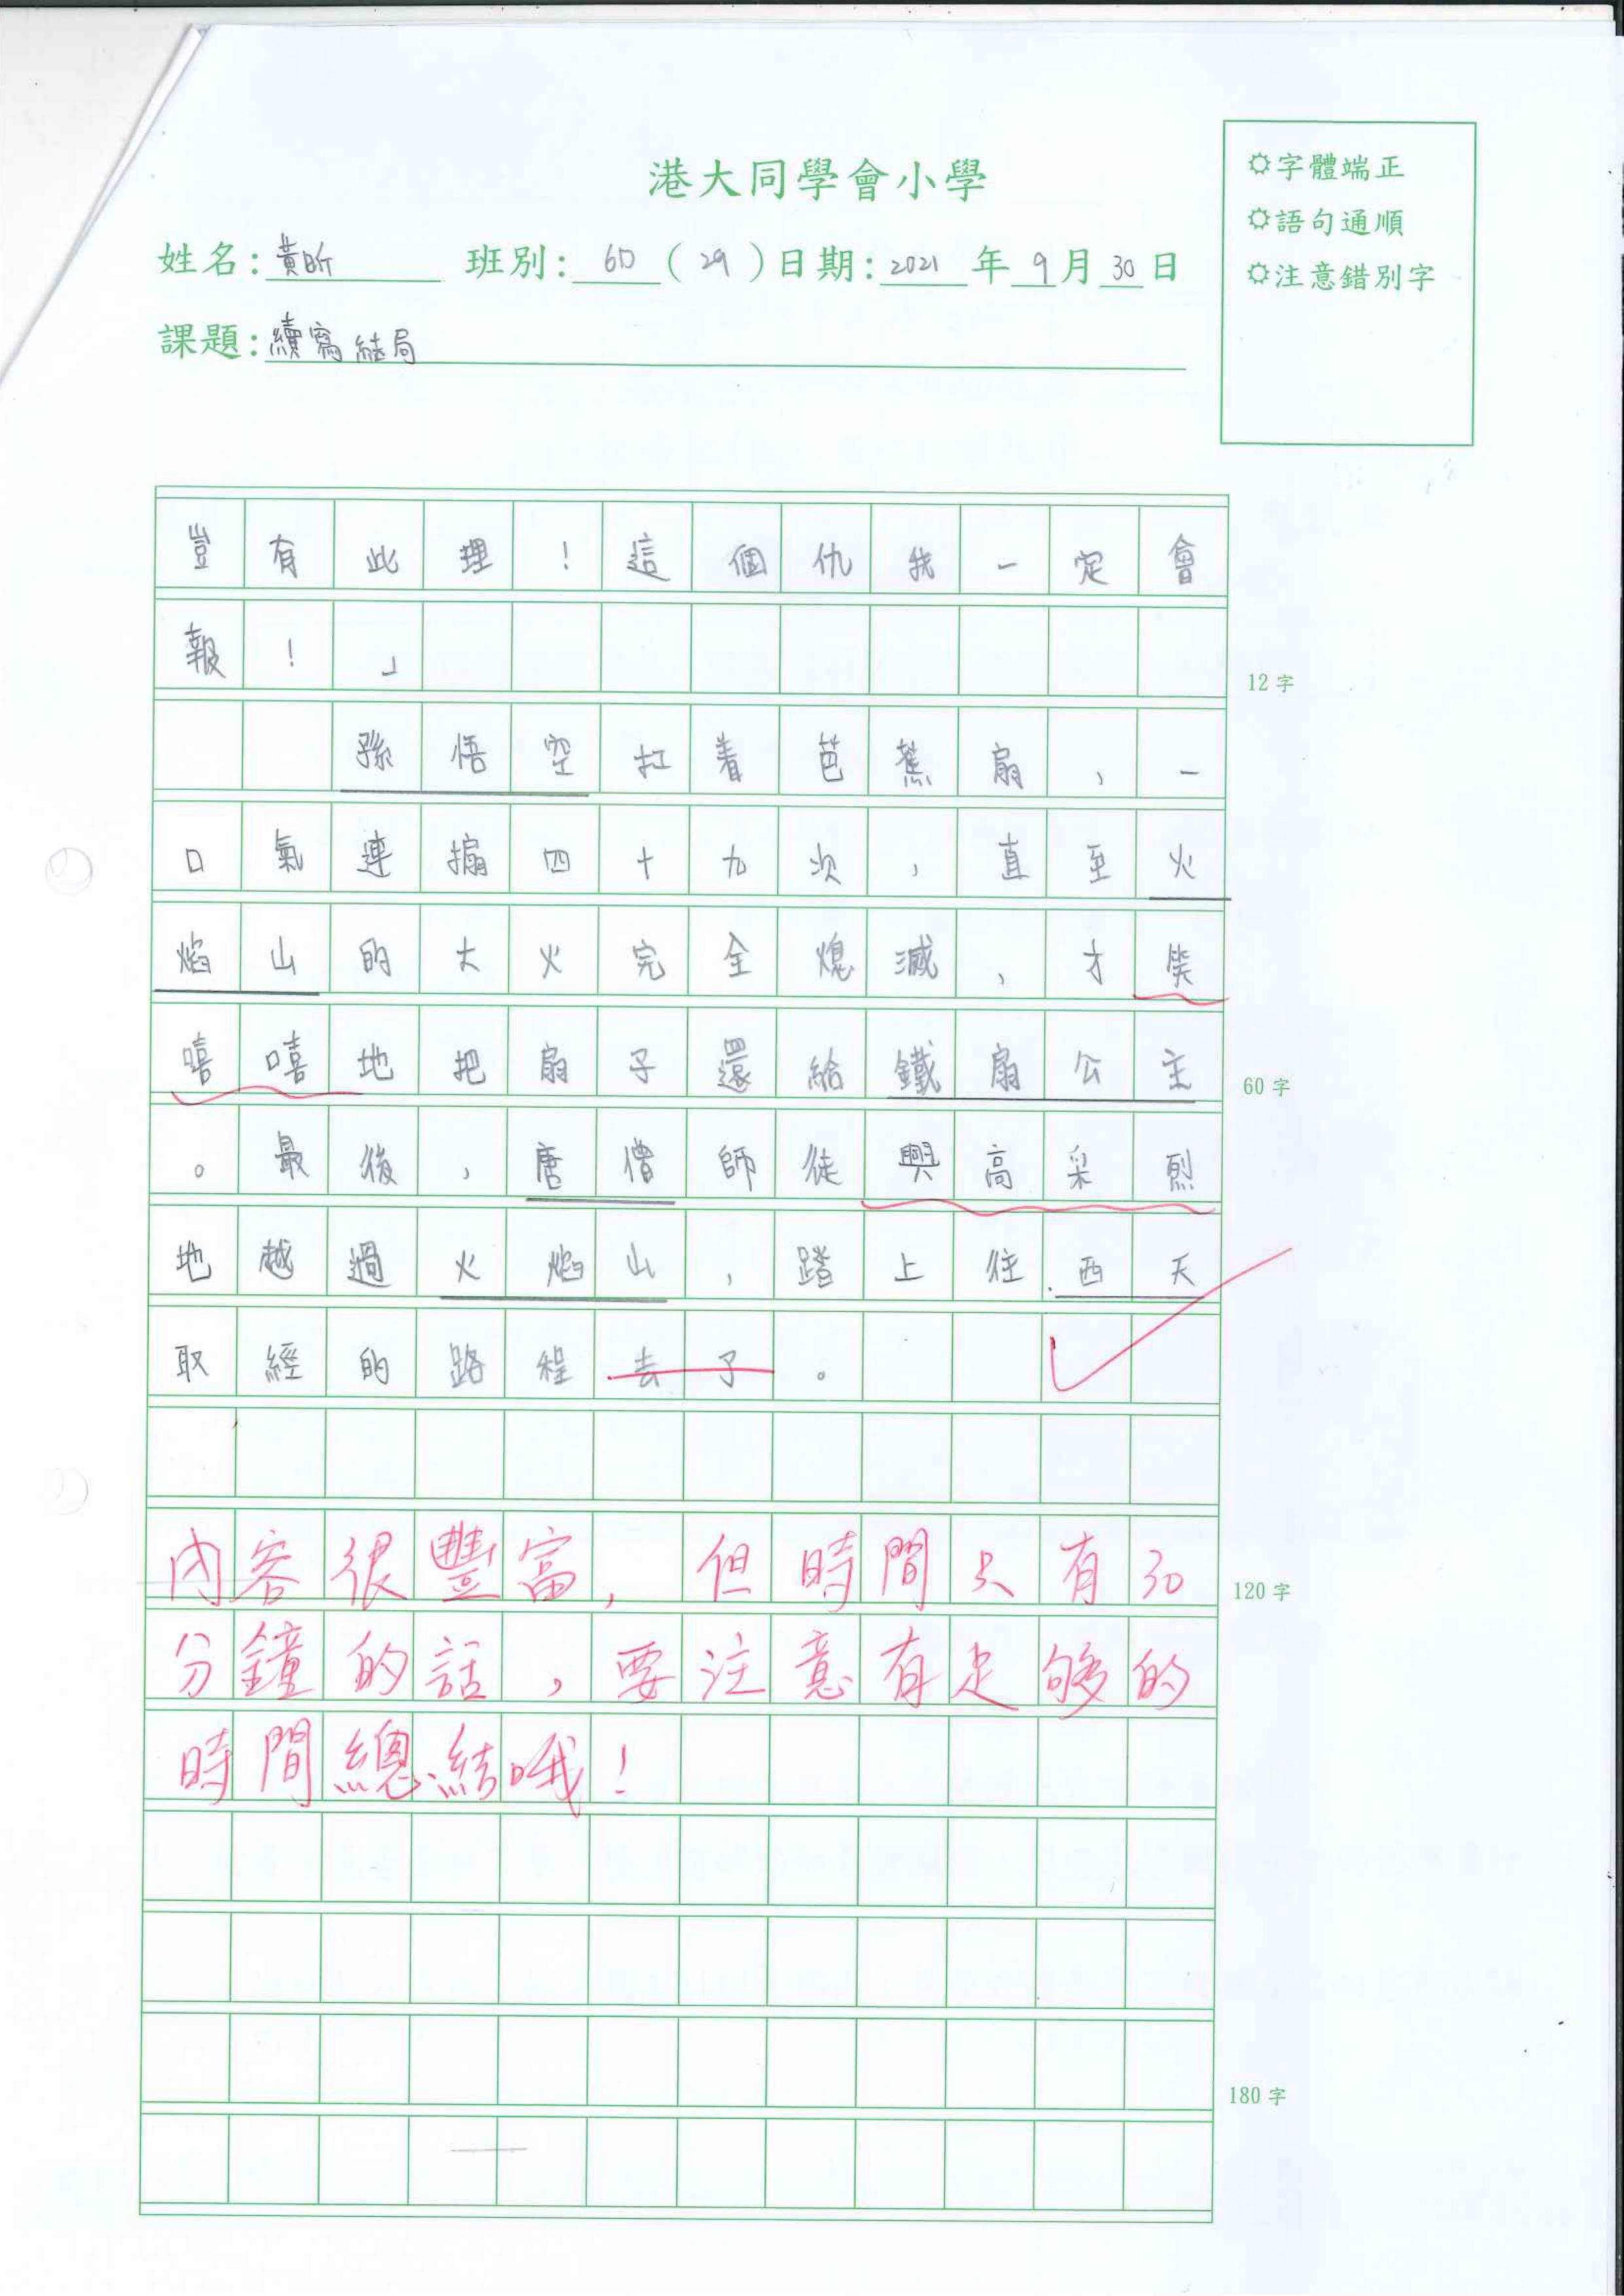 港大同學會小學
姓名：黃昕 班別：6D（29）日期：2021年9月30日
課題：續寫結局
✩字體端正
✩語句通順
✩注意錯別字
豈有此理！這個仇我一定會
報！」
12字
孫悟空扛着芭蕉扇，一
口氣連搧四十九次，直至火
焰山的大火完全熄滅，才笑
嘻嘻地把扇子還給鐵扇公主
60字
。最後，唐僧師徒興高采烈
地越過火焰山，踏上往西天
取經的路程去了。
內容很豐富，但時間只有30
120字
分鐘的話，要注意有足够的
時間總結哦！
180字